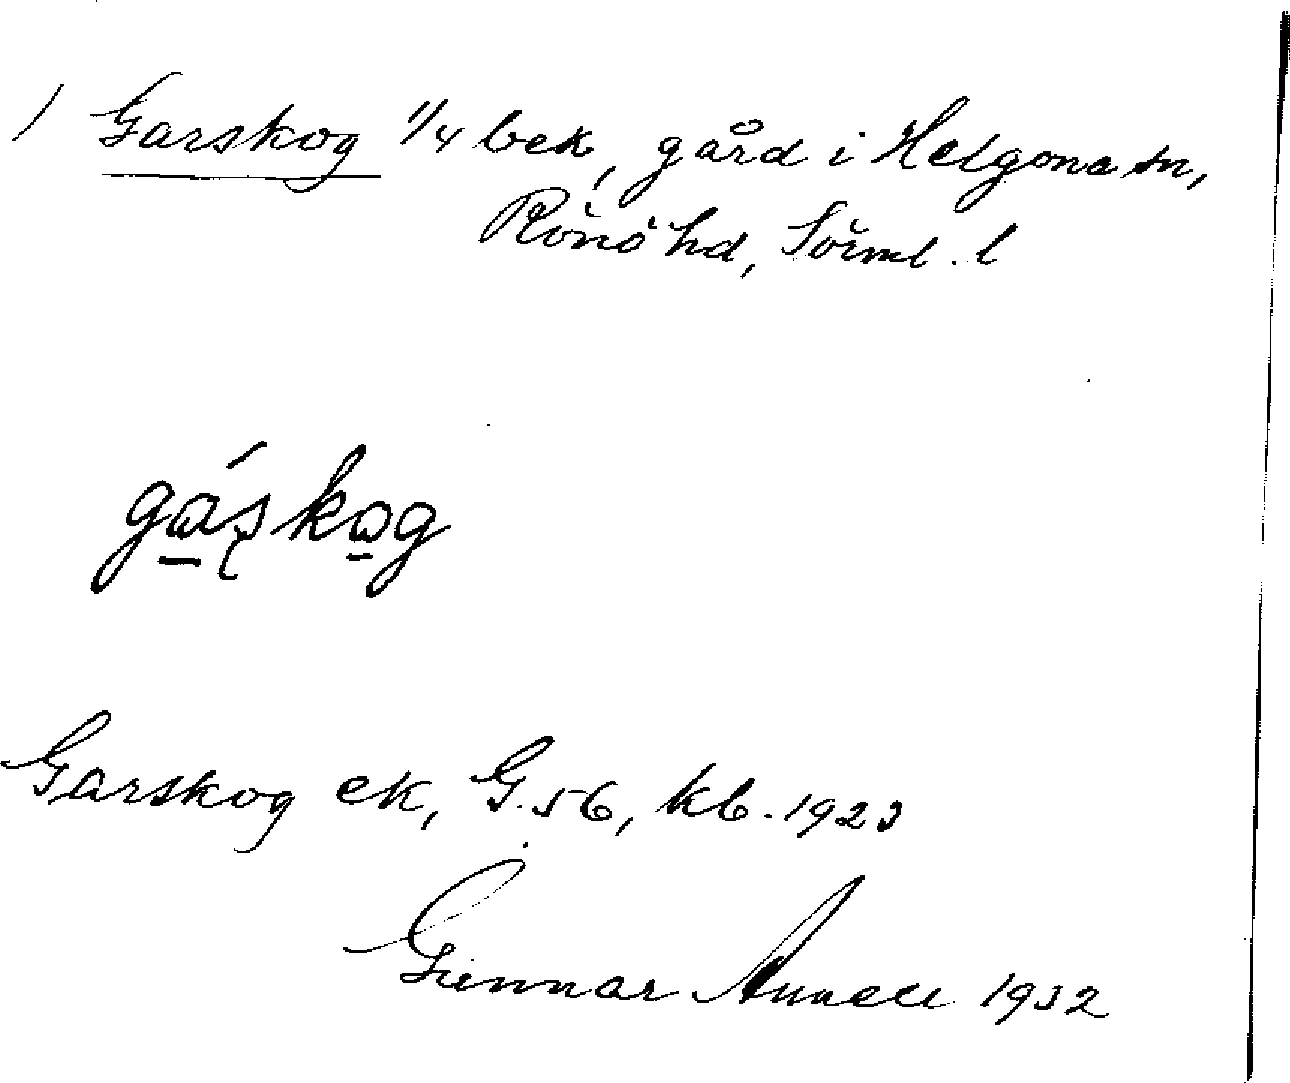 / Garskog 1/4 bek, gård i Helgona sn,
Rönö hd, Sörml. l
gáskog
Garskog ek, G. 56, kb. 1923
Gunnar Annell 1932